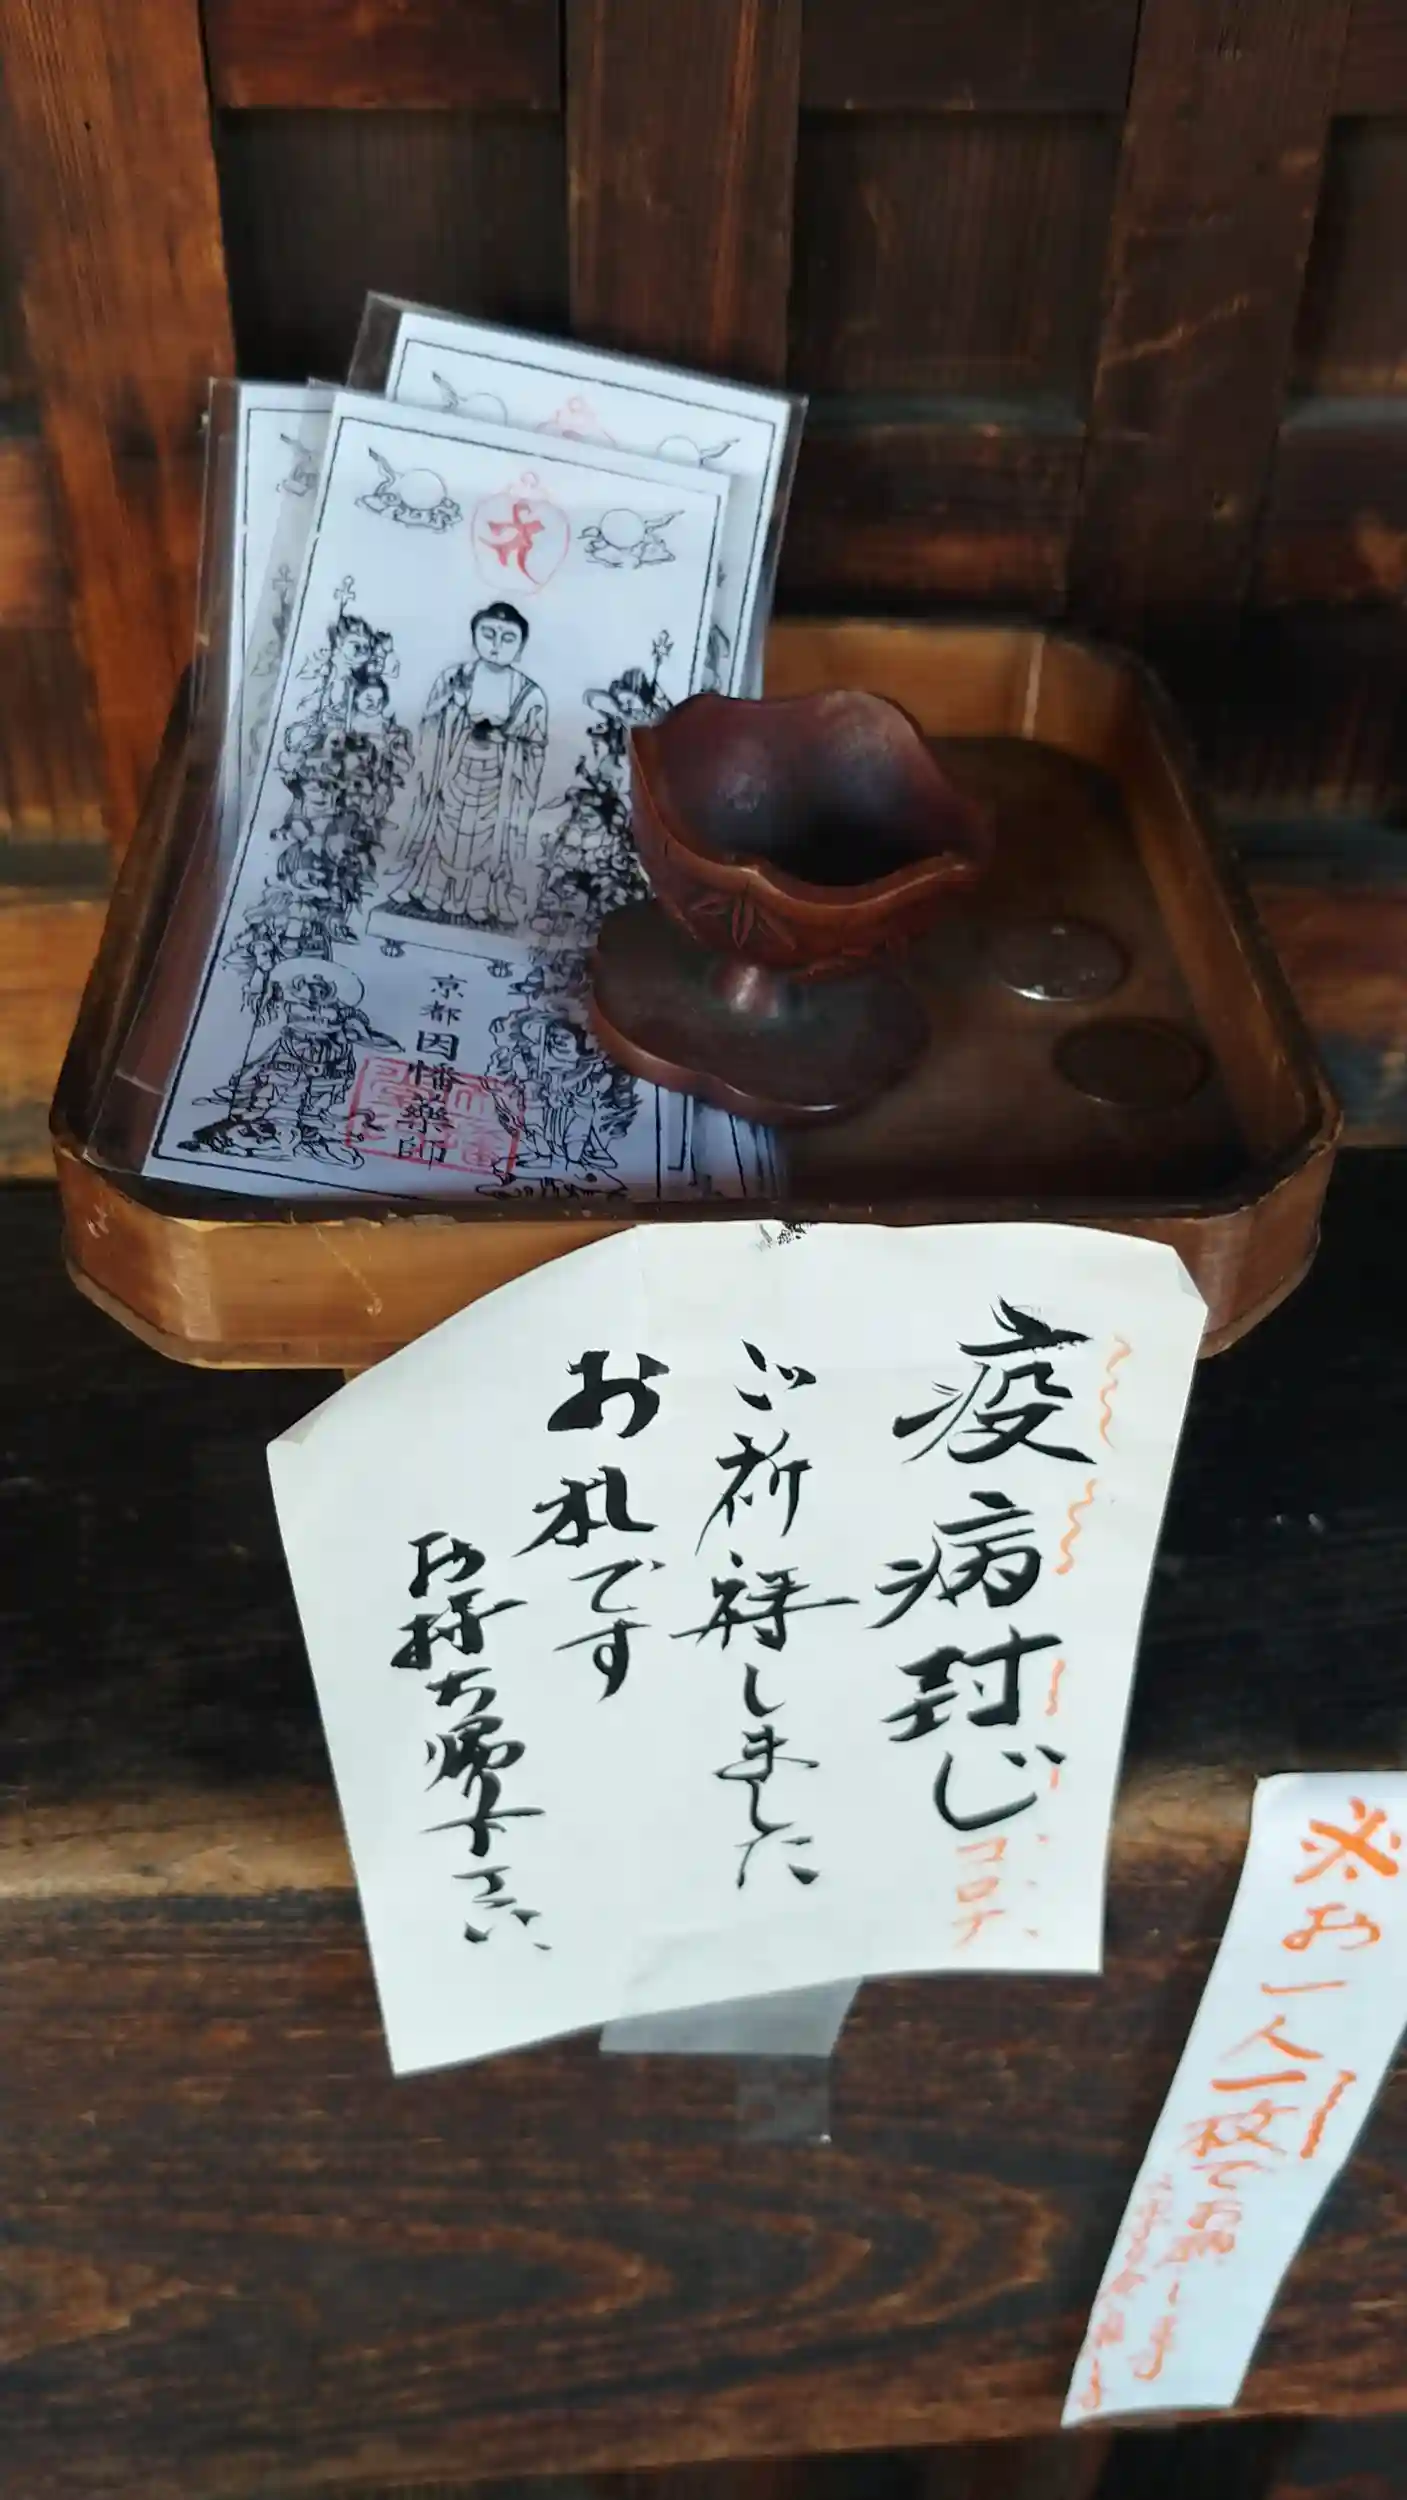 京都因幡藥師
疫病封じ
コロナ
ご祈祷しました
お札です
お持ち帰り下さい
※お一人一枚でお願いします